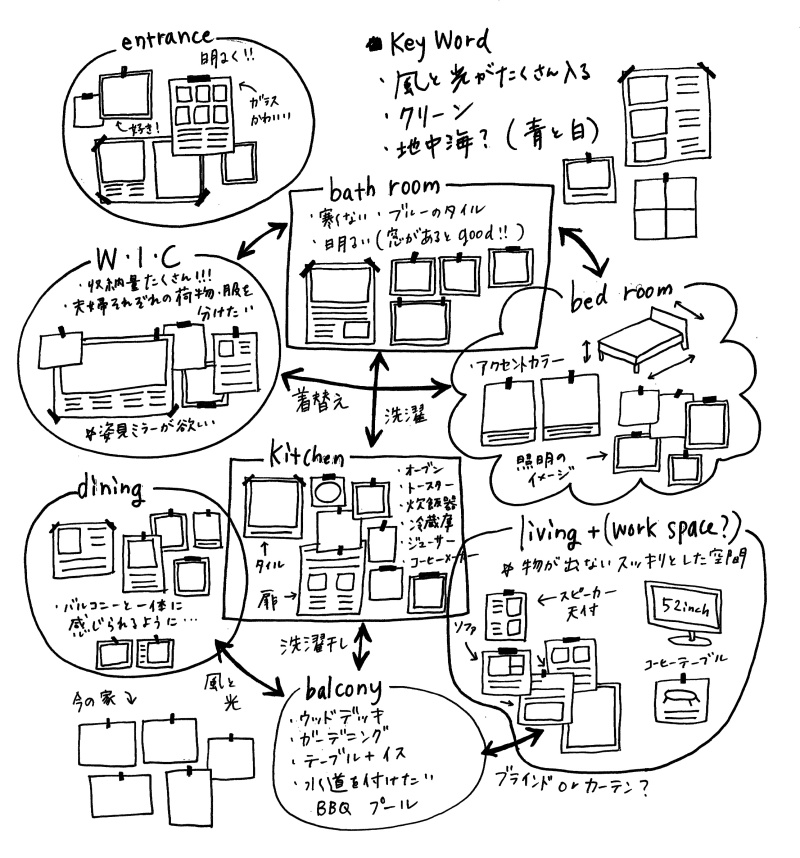 entrance
明るく!!
ガラス
かわいい
好き!
Key Word
・風と光がたくさん入る
・クリーン
・地中海?(青と白)
bath room
・寒くない・ブルーのタイル
・明るい(窓があるとgood!!)
W・I・C
・収納量たくさん!!!
・夫婦それぞれの荷物・服を
分けたい
*姿見ミラーが欲しい
bed room
・アクセントカラー
照明の
イメージ
着替え
洗濯
Kitchen
・オーブン
・トースター
・炊飯器
・冷蔵庫
・ジューサー
・コーヒーメーカー
タイル
扉
dining
・バルコニーと一体に
感じられるように…
living+(work space?)
*物が出ないスッキリとした空間
スピーカー
天付
ソファ
52inch
コーヒーテーブル
洗濯干し
風と
光
今の家
balcony
・ウッドデッキ
・ガーデニング
・テーブル+イス
・水道を付けたい
BBQ プール
ブラインドorカーテン?